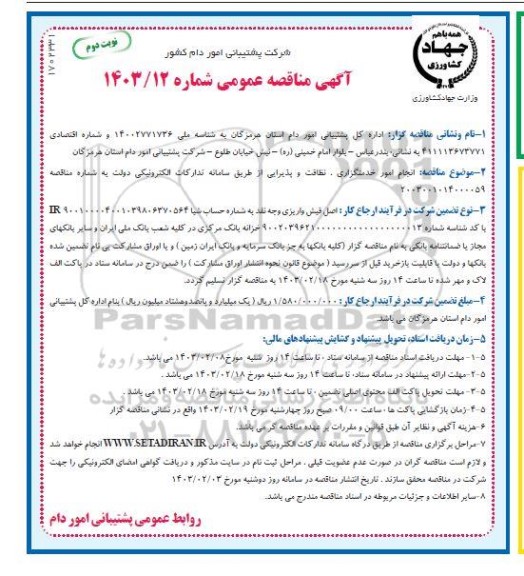 همه باهم
جهـاد
کشاورزی
وزارت جهادکشاورزی
شرکت پشتیبانی امور دام کشور
نوبت دوم
آگهی مناقصه عمومی شماره ۱۴۰۳/۱۲
۱-نام ونشانی مناقصه گزار: اداره کل پشتیبانی امور دام استان هرمزگان به شناسه ملی ۱۴۰۰۲۷۷۱۷۳۶ و شماره اقتصادی
۴۱۱۱۱۳۶۷۳۷۷۱ به نشانی: بندرعباس – بلوار امام خمینی (ره) – نبش خیابان طلوع – شرکت پشتیبانی امور دام استان هرمزگان
۲-موضوع مناقصه: انجام امور خدمتگزاری ، نظافت و پذیرایی از طریق سامانه تدارکات الکترونیکی دولت به شماره مناقصه
۲۰۰۳۰۰۱۰۱۴۰۰۰۰۵۹
۳-نوع تضمین شرکت در فرآیند ارجاع کار : اصل فیش واریزی وجه نقد به شماره حساب شبا IR ۹۰۰۱۰۰۰۰۴۰۰۱۰۳۹۸۰۶۳۷۰۵۶۴
با کد شناسه شماره خزانه بانک مرکزی در کلیه شعب بانک ملی ایران و سایر بانکهای
مجاز یا ضمانتنامه بانکی به نام مناقصه گزار (کلیه بانکها به جز بانک سرمایه و بانک ایران زمین ) و یا اوراق مشارکت بی نام تضمین شده
بانکها و دولت با قابلیت بازخرید قبل از سررسید ( موضوع قانون نحوه انتشار اوراق مشارکت ) را ضمن درج در سامانه ستاد در پاکت الف
لاک و مهر شده تا ساعت ۱۴ روز سه شنبه مورخ ۱۴۰۳/۰۲/۱۸ به مناقصه گزار تسلیم گردد.
۴-مبلغ تضمین شرکت در فرآیند ارجاع کار : ۱/۵۸۰/۰۰۰/۰۰۰ ریال ( یک میلیارد و پانصدوهشتاد میلیون ریال ) بنام اداره کل پشتیبانی
امور دام استان هرمزگان می باشد.
۵-زمان دریافت اسناد، تحویل پیشنهاد و گشایش پیشنهادهای مالی:
۵-۱- مهلت دریافت اسناد مناقصه از سامانه ستاد : تا ساعت ۱۴ روز شنبه مورخ ۱۴۰۳/۰۲/۰۸ می باشد.
۵-۲- مهلت ارائه پیشنهاد در سامانه ستاد: تا ساعت ۱۴ روز سه شنبه مورخ ۱۴۰۳/۰۲/۱۸ می باشد .
۵-۳- مهلت تحویل پاکت الف محتوی اصل تضمین : تا ساعت ۱۴ روز سه شنبه مورخ ۱۴۰۳/۰۲/۱۸ می باشد .
۵-۴-زمان بازگشایی پاکت ها : ساعت ۰۹/۰۰ صبح روز چهارشنبه مورخ ۱۴۰۳/۰۲/۱۹ واقع در نشانی مناقصه گزار
۶-هزینه آگهی و نظایر آن طبق قوانین و مقررات بر عهده مناقصه گر می باشد.
۷-مراحل برگزاری مناقصه از طریق درگاه سامانه تدارکات الکترونیکی دولت به آدرس WWW.SETADIRAN.IR انجام خواهد شد
و لازم است مناقصه گران در صورت عدم عضویت قبلی ، مراحل ثبت نام در سایت مذکور و دریافت گواهی امضای الکترونیکی را جهت
شرکت در مناقصه محقق سازند . تاریخ انتشار مناقصه در سامانه روز دوشنبه مورخ ۱۴۰۳/۰۲/۰۳
۸-سایر اطلاعات و جزئیات مربوطه در اسناد مناقصه مندرج می باشد.
روابط عمومی پشتیبانی امور دام
ParsNamadData